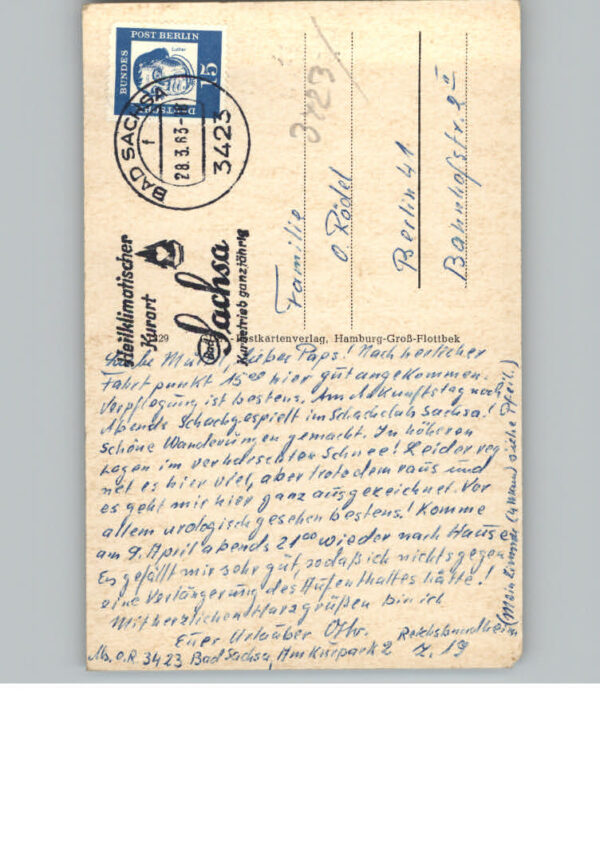 DEUTSCHE
BUNDES
POST BERLIN
Luther
15
BAD SACHSA
f
28.3.63-
3423
Heilklimatischer
Kurort
Bad
Sachsa
Kurbetrieb ganzjährig
3423
Familie
O Rödel
Berlin 41
Bahnhofstr. 2 II
29
-Postkartenverlag, Hamburg-Groß-Flottbek
Liebe Mutti, lieber Paps! Nach herrlicher
Fahrt punkt 15 00 hier gut angekommen.
Verpflegung ist bestens. Am Ankunftstag noch
Abends Schach gespielt im Schachclub Sachsa!
Schöne Wanderungen gemacht. In höheren
Lagen im verharschten Schnee! Leider reg-
net es hier viel, aber trotzdem raus und
es geht mir hier ganz ausgezeichnet. Vor
allem urologisch gesehen bestens! Komme
am 9. April abends 21 00 wieder nach Hause
Es gefällt mir sehr gut, sodaß ich nichts gegen
eine Verlängerung des Aufenthaltes hätte!
Mit herzlichen Harzgrüßen bin ich
Euer Urlauber
Reichsbundheim
Abs. O.R. 3423 Bad Sachsa, Am Kurpark 2 Z. 19
(Mein Zimmer (4 Mann) siehe Pfeil.)